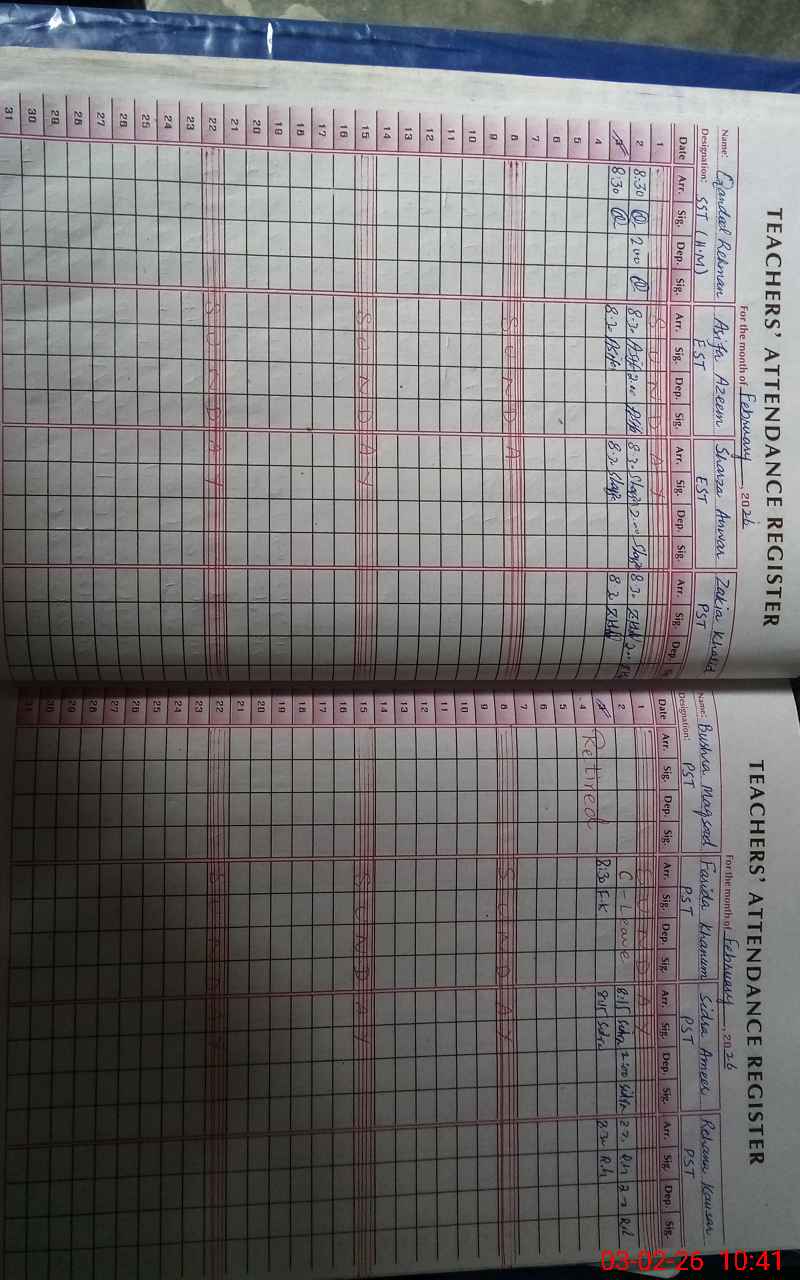 TEACHERS' ATTENDANCE REGISTER
For the month of February, 2026
Name: Qandeel Rehman Asifa Azeem Shazza Anwar Zakia Khalid
Designation: SST (H.M) EST EST PST
Date Arr. Sig. Dep. Sig. Arr. Sig. Dep. Sig. Arr. Sig. Dep. Sig. Arr. Sig. Dep.
1 SUNDAY
2 8:30 2:00 8:30 Asifa 2:00 Asifa 8:30 2:00 8:30 2:00
3 8:30 8:30 Asifa 8:30 8:30
4
5
6
7
8 SUNDA
9
10
11
12
13
14
15 SUNDAY
16
17
18
19
20
21
22 SUNDAY
23
24
25
26
27
28
29
30
31
TEACHERS' ATTENDANCE REGISTER
For the month of February, 2026
Name: Bushra Maqsood Farida Khanum Sidra Ameer Rehana Kousar
Designation: PST PST PST PST
Date Arr. Sig. Dep. Sig. Arr. Sig. Dep. Sig. Arr. Sig. Dep. Sig. Arr. Sig. Dep. Sig.
1 SUNDAY
2 C-Leave 8:15 Sidra 2:00 Sidra R.h
3 Retired 8:30 F.K 8:15 Sidra R.h
4
5
6
7
8 SUNDAY
9
10
11
12
13
14
15 SUNDAY
16
17
18
19
20
21
22 SUNDAY
23
24
25
26
27
28
29
30
31
03-02-26 10:41